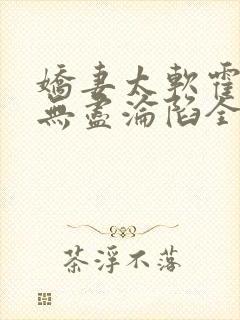 嬌妻太軟霍
無盡淪陷全
茶浮不落